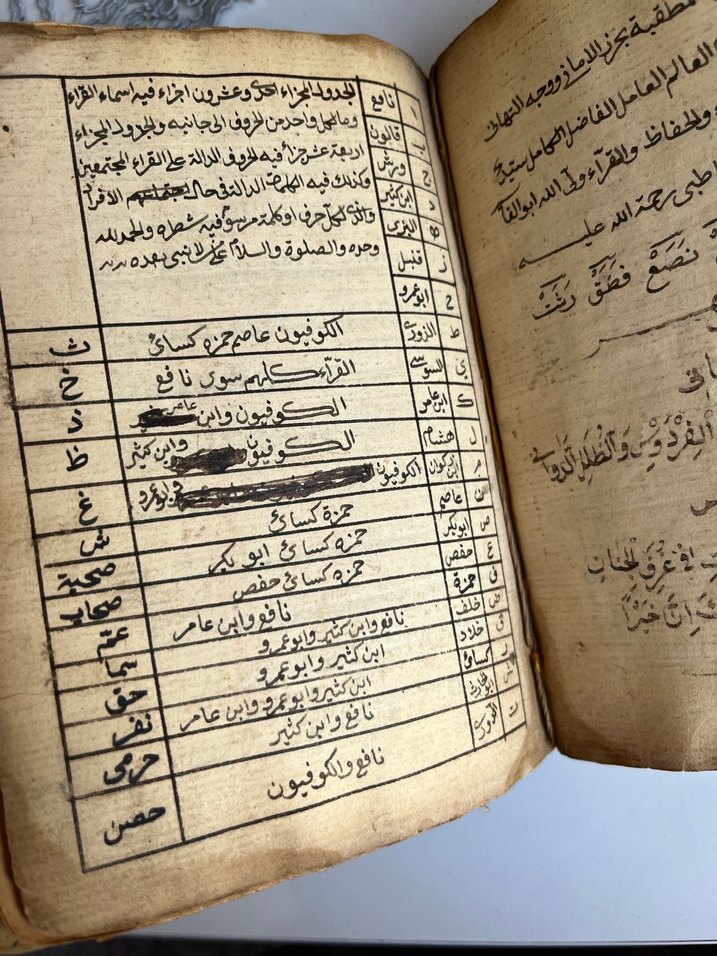 الجدول المجزاء احدى وعشرون اجزاء فيه اسماء القراء
وما لكل واحد من الحروف الى جانبه والجدول المجزاء
اربعة عشر جزأ فيه الحروف الدالة على القراء المجتمعين
وكذلك فيه الكلمات الدالة في حال اجتماعهم الافراد
والذى لكل حرف او كلمة مرسوم فيه شطره والحمد لله
وحده والصلوة والسلام على من لا نبي بعده
ا نافع
ب قالون
ج ورش
د ابن كثير
ه البزى
ز قنبل
ح ابو عمرو
ط الدورى
ي السوسى
ك ابن عامر
ل هشام
م ابن ذكوان
ن عاصم
ص ابو بكر
ع حفص
ف حمزة
ض خلف
ق خلاد
ر كسائ
س ابو الحارث
ت الدورى
الكوفيون عاصم حمزه كسائ ث
القرّاء كلهم سوى نافع خ
الكوفيون وابن عامر ذ
الكوفيون وابن كثير ظ
الكوفيون وابو عمرو غ
حمزة كسائ ش
حمزه كسائ ابو بكر صحبة
حمزه كسائ حفص صحاب
نافع وابن عامر عمّ
نافع وابن كثير وابو عمرو سما
ابن كثير وابو عمرو حق
ابن كثير وابو عمرو وابن عامر نفر
نافع وابن كثير حرمى
نافع والكوفيون حصن
بحرز الامانى ووجه التهانى
العالم العامل الفاضل الكامل سيد
والحفاظ والقرّاء ولىّ الله ابو القا
طبى رحمة الله عليه
نَصَعْ فَضَقْ رَسَتْ
الفِرْدَوْسِ وَالظّلَلِ
فى غُرَفِ الجنان
اِنَّ خَيْرًا